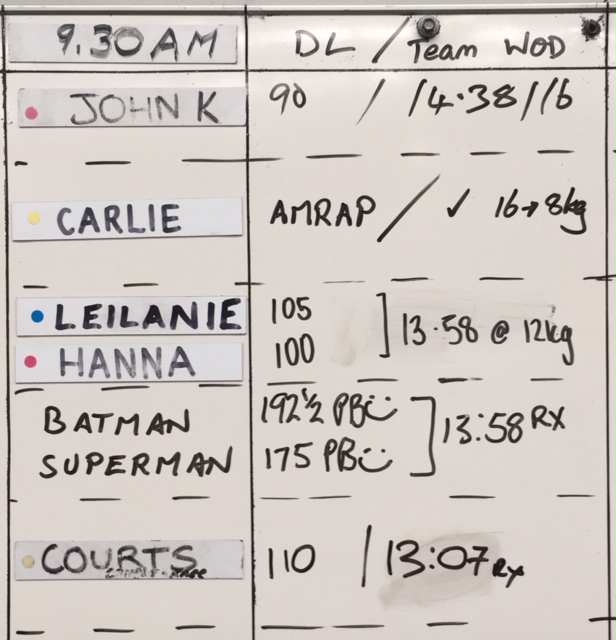 9.30 AM DL / Team WOD
JOHN K 90 / 14.38 / 16
CARLIE AMRAP / ✓ 16→8kg
LEILANIE 105
HANNA 100 ] 13.58 @ 12kg
BATMAN 192½ PB
SUPERMAN 175 PB ] 13:58 RX
COURTS 110 / 13:07 Rx